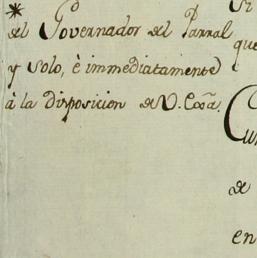 *
del Governador del Parral
y solo, è immediatamente
à la disposicion de V. Exã.
que
Cum
de
en